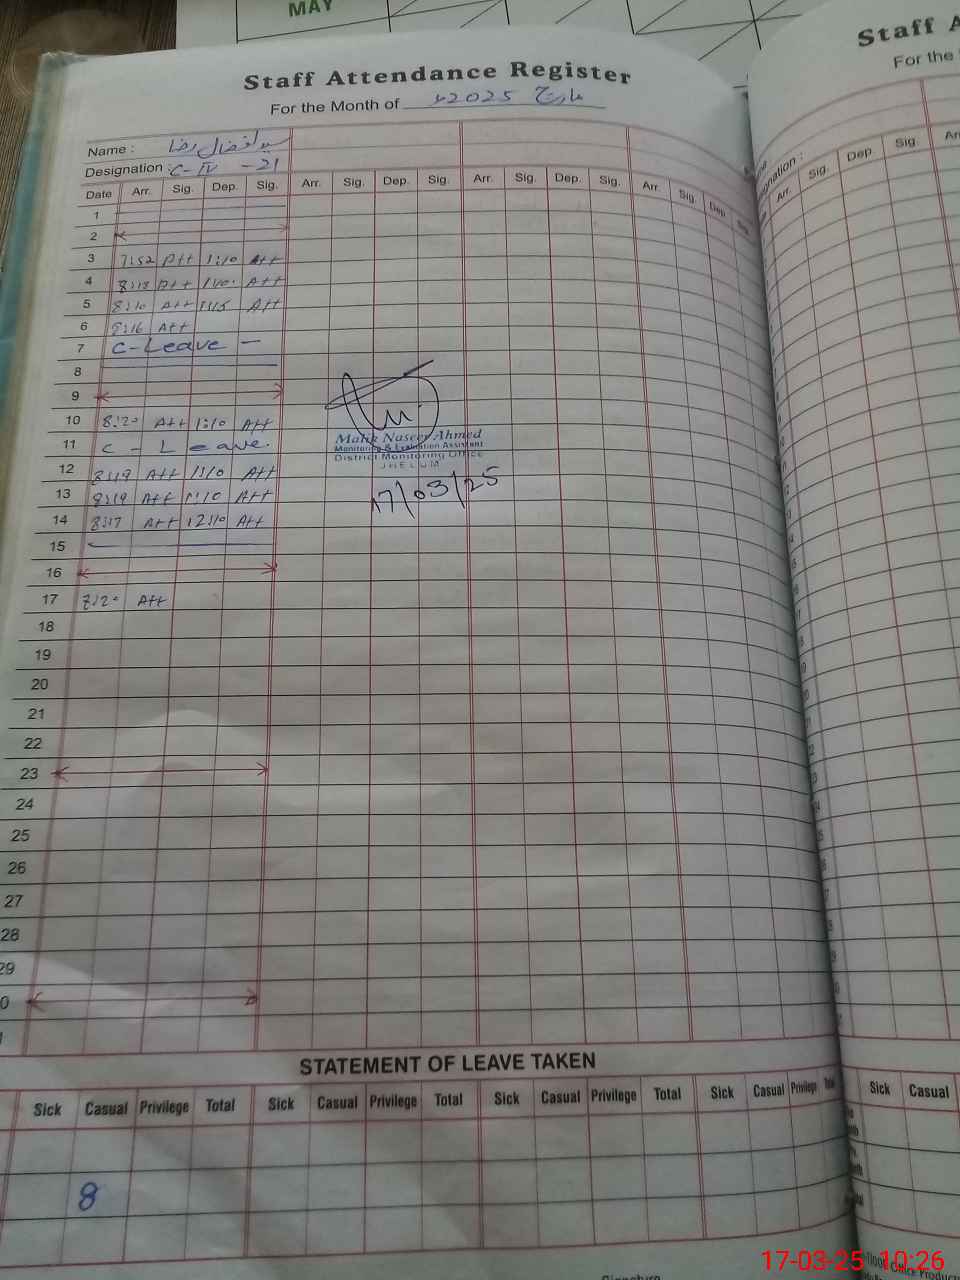 MAY
Staff Attendance Register
For the Month of مارچ 2025ء
Name : سید افضال رضا
Designation : C-IV -21
Date Arr. Sig. Dep. Sig. Arr. Sig. Dep. Sig. Arr. Sig. Dep. Sig. Arr. Sig. Dep. Sig.
1
2
3 7:52 Att 1:10 Att
4 8:13 Att Att
5 8:10 Att 1:15 Att
6 8:16 Att
7 C-Leave -
8
9
10 8:20 Att 1:10 Att
11 C-Leave.
12 8:19 Att 1:10 Att
13 8:19 Att 1:10 Att
14 8:17 Att 12:10 Att
15
16
17 8:20 Att
18
19
20
21
22
23
24
25
26
27
28
29
0
Malik Naseer Ahmed
Monitoring & Evaluation Assistant
District Monitoring Office
JHELUM
17/03/25
STATEMENT OF LEAVE TAKEN
Sick Casual Privilege Total Sick Casual Privilege Total Sick Casual Privilege Total Sick Casual Privilege Total
8
Staff A
For the
Arr. Sig. Dep. Sig.
Sick Casual
17-03-25 10:26